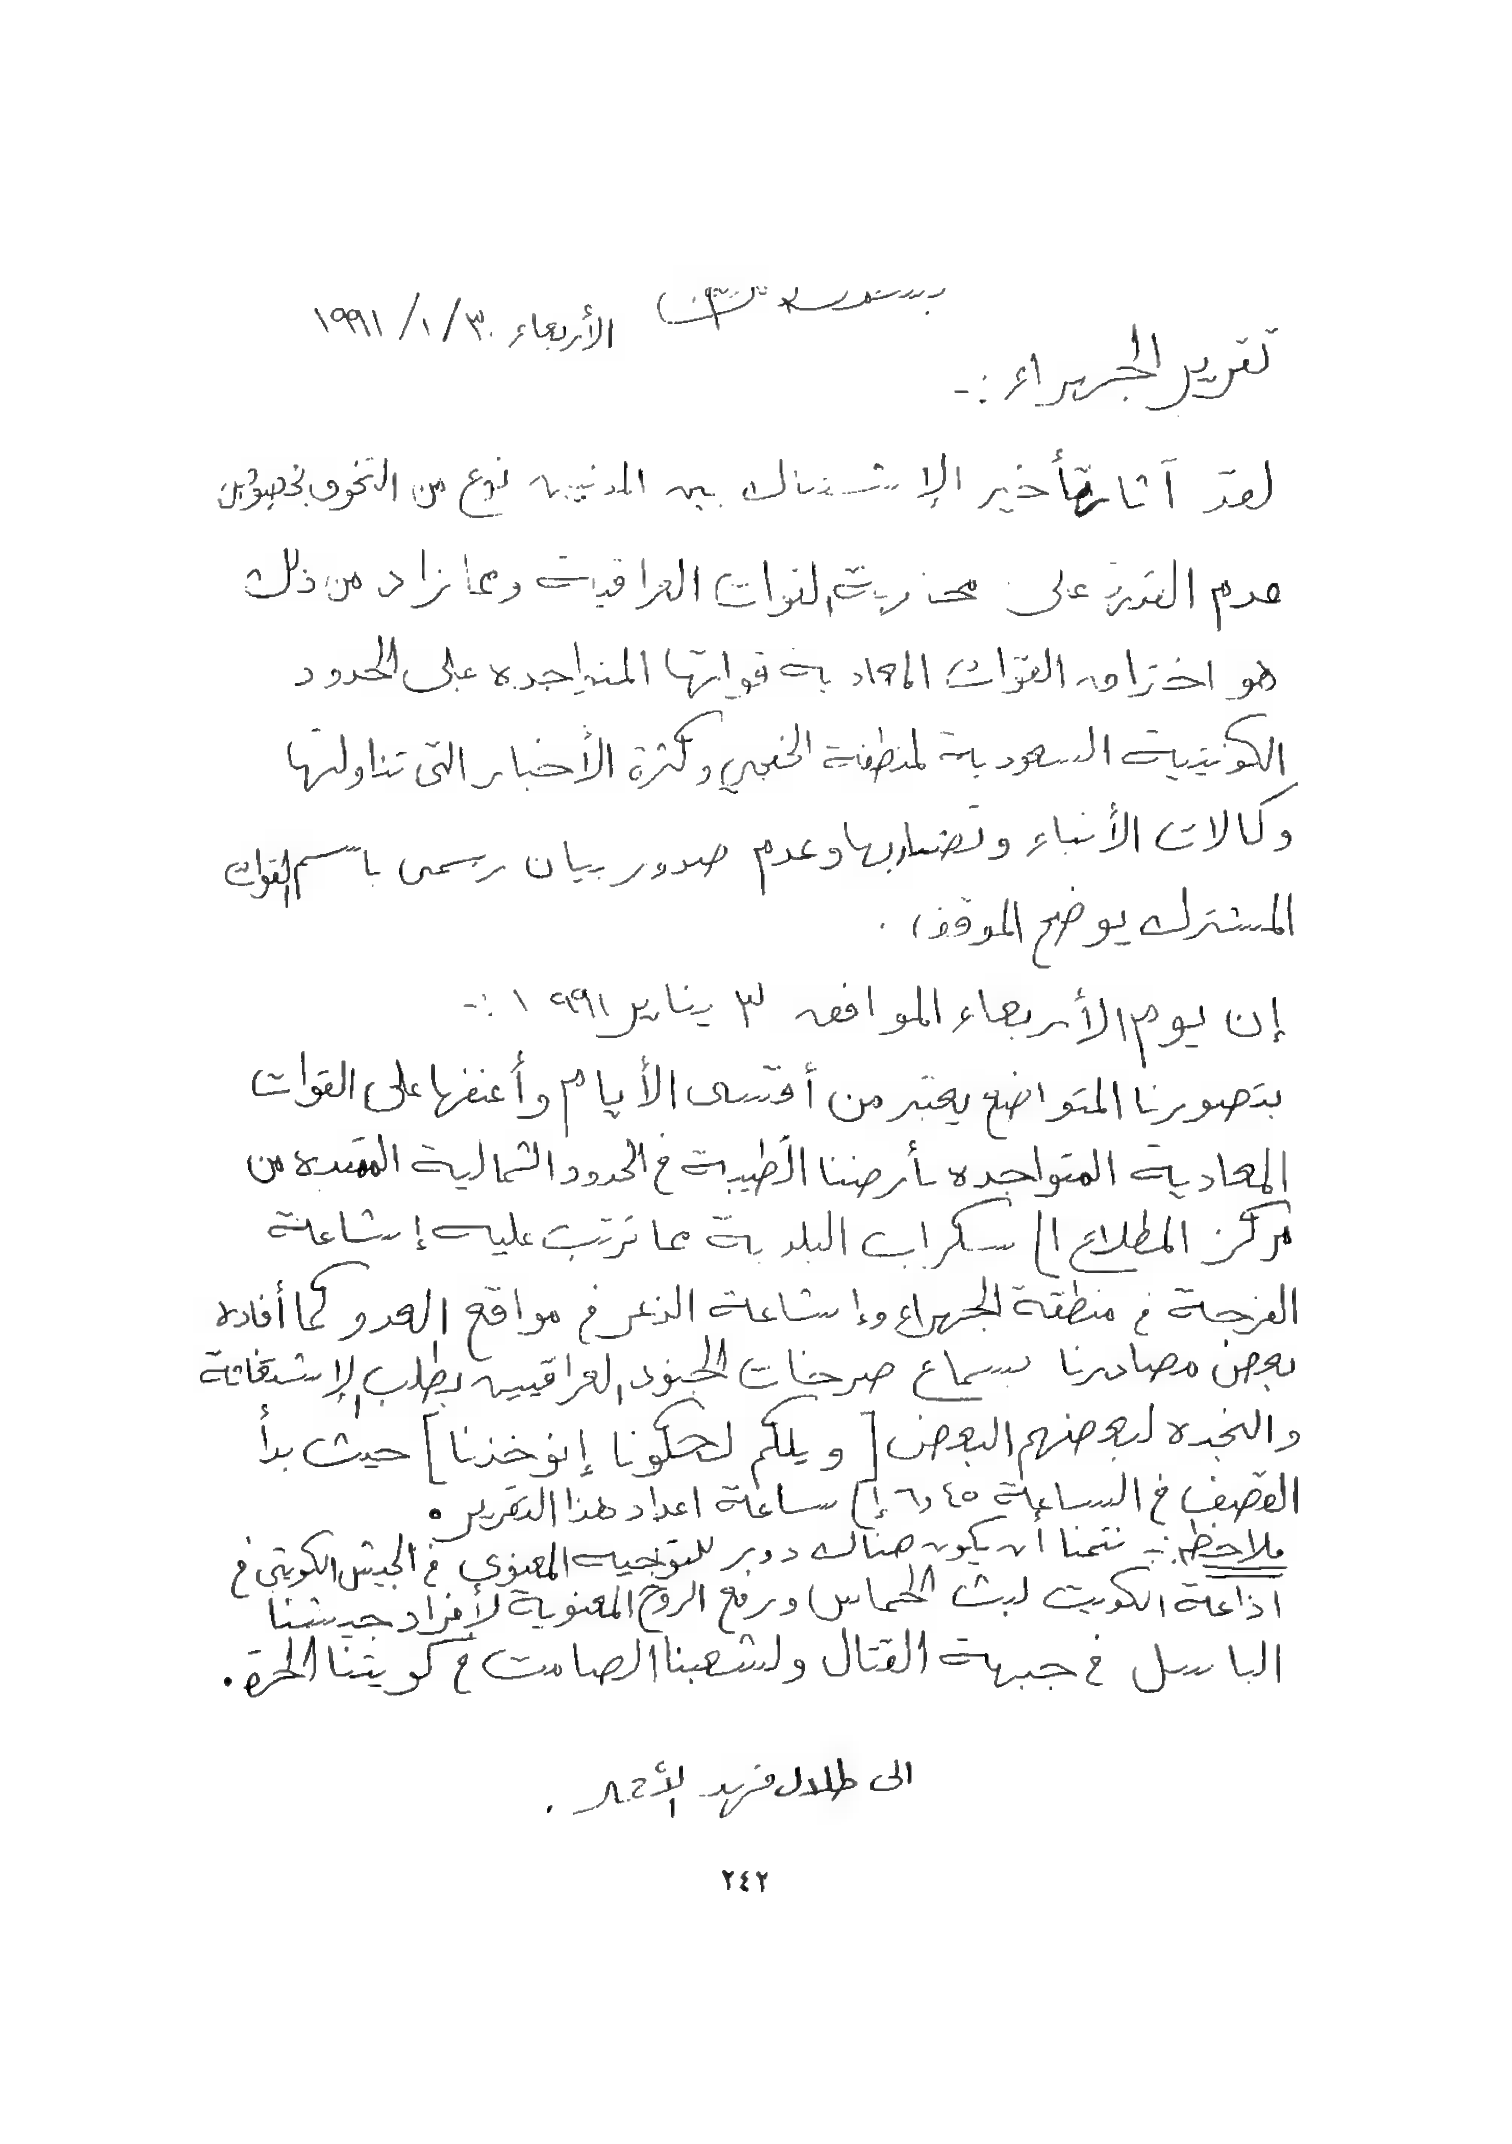 الأربعاء ٣٠/١/١٩٩١
تقرير الجهراء :-
لقد آثار تأخير الإشتباك بين المدنيين نوع من التخوف بخصوص
عدم القدرة على محاربة القوات العراقية ومما زاد من ذلك
هو اختراق القوات المعادية قواتها المتواجده على الحدود
الكويتية السعودية لمنطقة الخفجي وكثرة الأخبار التي تناولتها
وكالات الأنباء وتضاربها وعدم صدور بيان رسمى باسم القوات
المشتركه يوضح الموقف .
إن يوم الأربعاء الموافق ٣٠ يناير ١٩٩١ :-
بتصورنا المتواضع يعتبر من أقسى الأيام وأعنفها على القوات
المعادية المتواجده بأرضنا الطيبة في الحدود الشمالية الممتده من
مركز المطلاع إلى سكراب البلدية مما ترتب عليه إشاعة
الفرحة في منطقة الجهراء وإشاعة الذعر في مواقع العدو كما أفاده
بعض مصادرنا بسماع صرخات الجنود العراقيين بطلب الإستغاثة
والنجده لبعضهم البعض [ ويلكم لحكونا إنوخذنا ] حيث بدأ
القصف في الساعة ٦٫٤٥ إلى ساعة اعداد هذا التقرير .
ملاحظة :- نتمنا أن يكون هناك دور للتوجيه المعنوي في الجيش الكويتي في
اذاعة الكويت لبث الحماس ورفع الروح المعنوية لأفراد جيشنا
الباسل في جبهة القتال ولشعبنا الصامت في كويتنا الحرة .
الى طلال فهد الأحمد .
٢٤٢